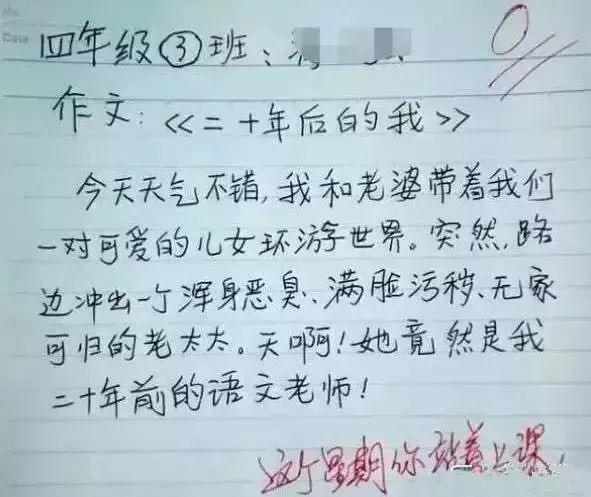 四年级③班:
0
作文:《二十年后的我》
今天天气不错,我和老婆带着我们
一对可爱的儿女环游世界。突然,路
边冲出一个浑身恶臭、满脸污秽、无家
可归的老太太。天啊!她竟然是我
二十年前的语文老师!
这个星期你站着上课.